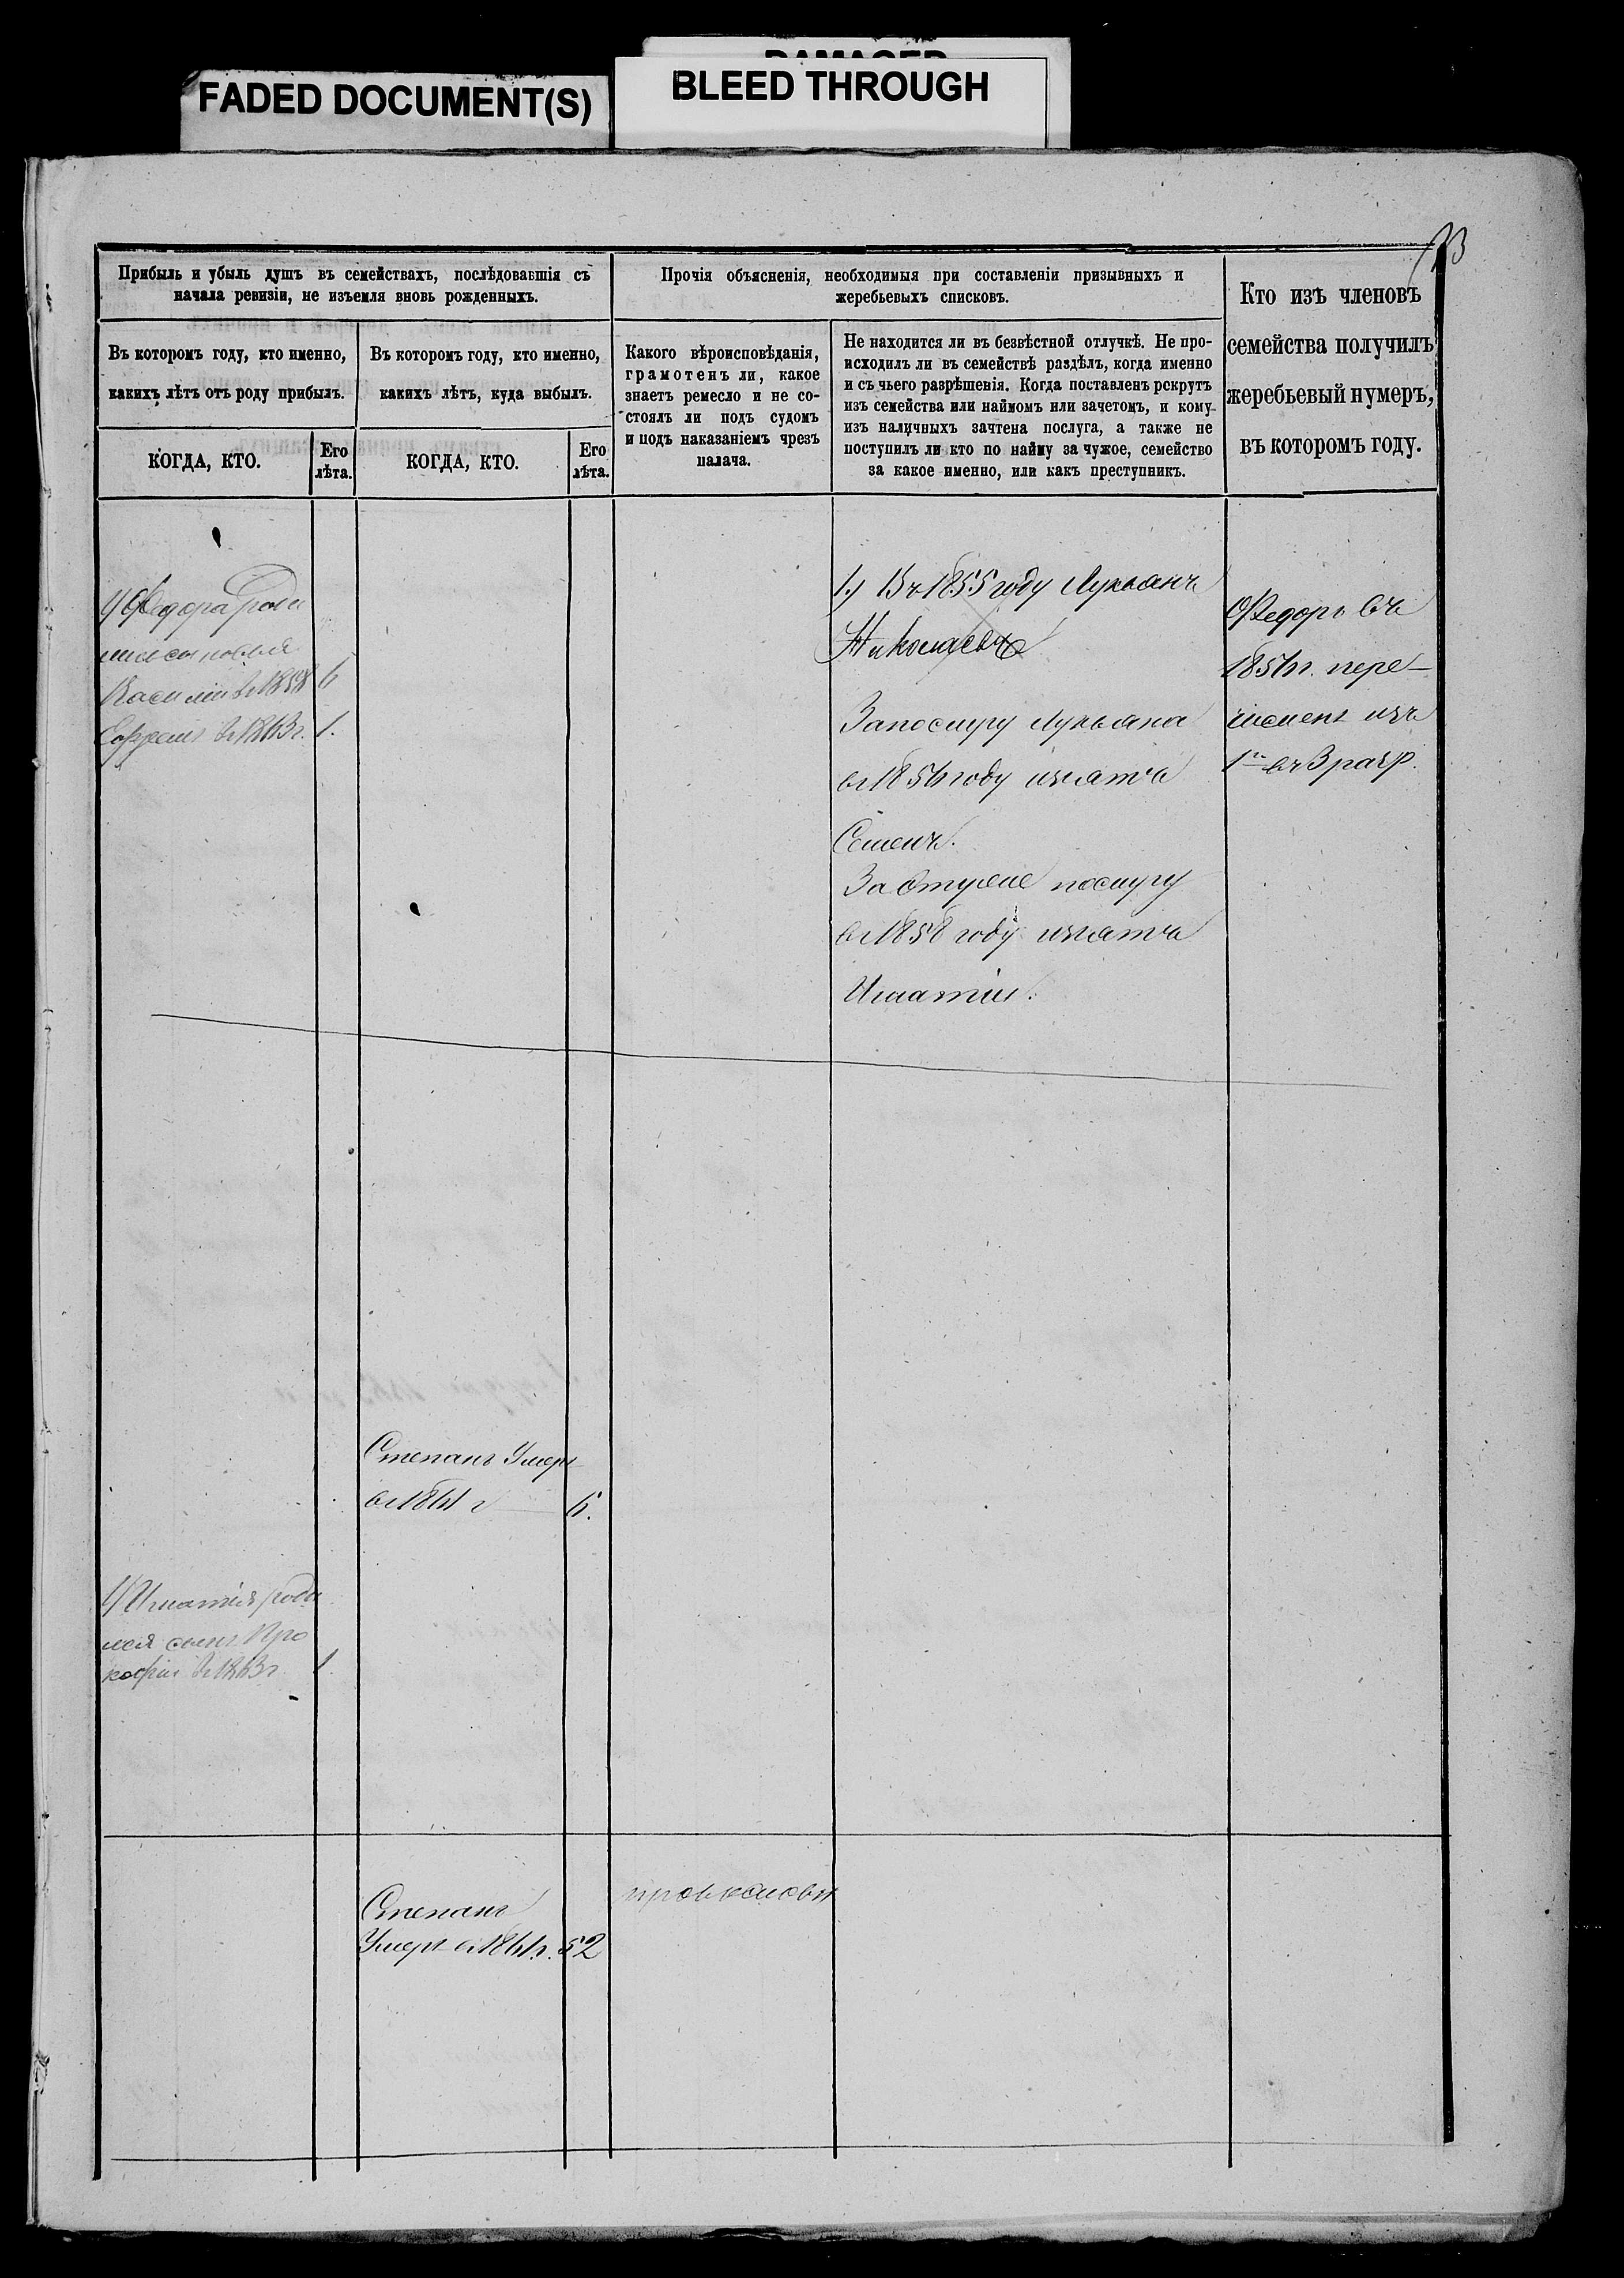 FADED DOCUMENT(S)
BLEED THROUGH
Прибыль и убыль душъ въ семействахъ, послѣдовавшія съ
начала ревизіи, не изъемля вновь рожденныхъ.
Прочія объясненія, необходимыя при составленіи призывныхъ и
жеребьевыхъ списковъ.
Кто изъ членовъ
семейства получилъ
жеребьевый нумеръ,
въ которомъ году.
Въ которомъ году, кто именно,
какихъ лѣтъ отъ роду прибылъ.
Въ которомъ году, кто именно,
какихъ лѣтъ, куда выбылъ.
Какого вѣроисповѣданія,
грамотенъ ли, какое
знаетъ ремесло и не со-
стоялъ ли подъ судомъ
и подъ наказаніемъ чрезъ
палача.
Не находится ли въ безвѣстной отлучкѣ. Не про-
исходилъ ли въ семействѣ раздѣлъ, когда именно
и съ чьего разрѣшенія. Когда поставленъ рекрутъ
изъ семейства или наймомъ или зачетомъ, и кому
изъ наличныхъ зачтена послуга, а также не
поступилъ ли кто по найму за чужое, семейство
за какое именно, или какъ преступникъ.
КОГДА, КТО.
Его
лѣта.
КОГДА, КТО.
Его
лѣта.
У Федора роди
лись сыновья
Василій в 1858 6
Ефремъ в 1863 г. 1.
1.) Въ 1855 году Лукьянъ
Николаевъ
За послугу Лукьяна
в 1856 году изъятъ
Семенъ.
За послугу
в 1858 году изъятъ
Игнатій.
Федоръ въ
1856 г. пере-
численъ изъ
1го въ 3 разр.
Степанъ Умеръ
в 1861 г 6.
У Игнатія роди
лся сынъ Про
кофій в 1863 г 1.
Степанъ
Умеръ в 1861 г. 52
православн